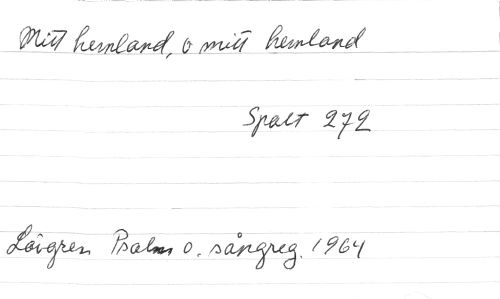 Mitt hemland, o mitt hemland
Spalt 272
Lövgren Psalm o. sångreg. 1964